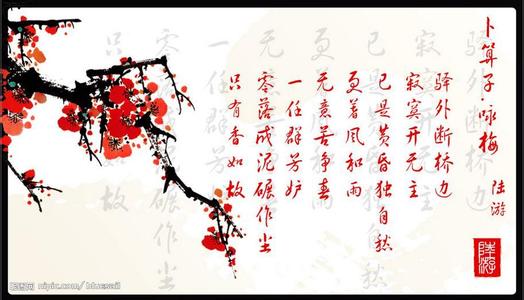 卜算子·咏梅
陆游
驿外断桥边
寂寞开无主
已是黄昏独自愁
更着风和雨
无意苦争春
一任群芳妒
零落成泥碾作尘
只有香如故
陸游
昵图网
nipic.com/bluesail